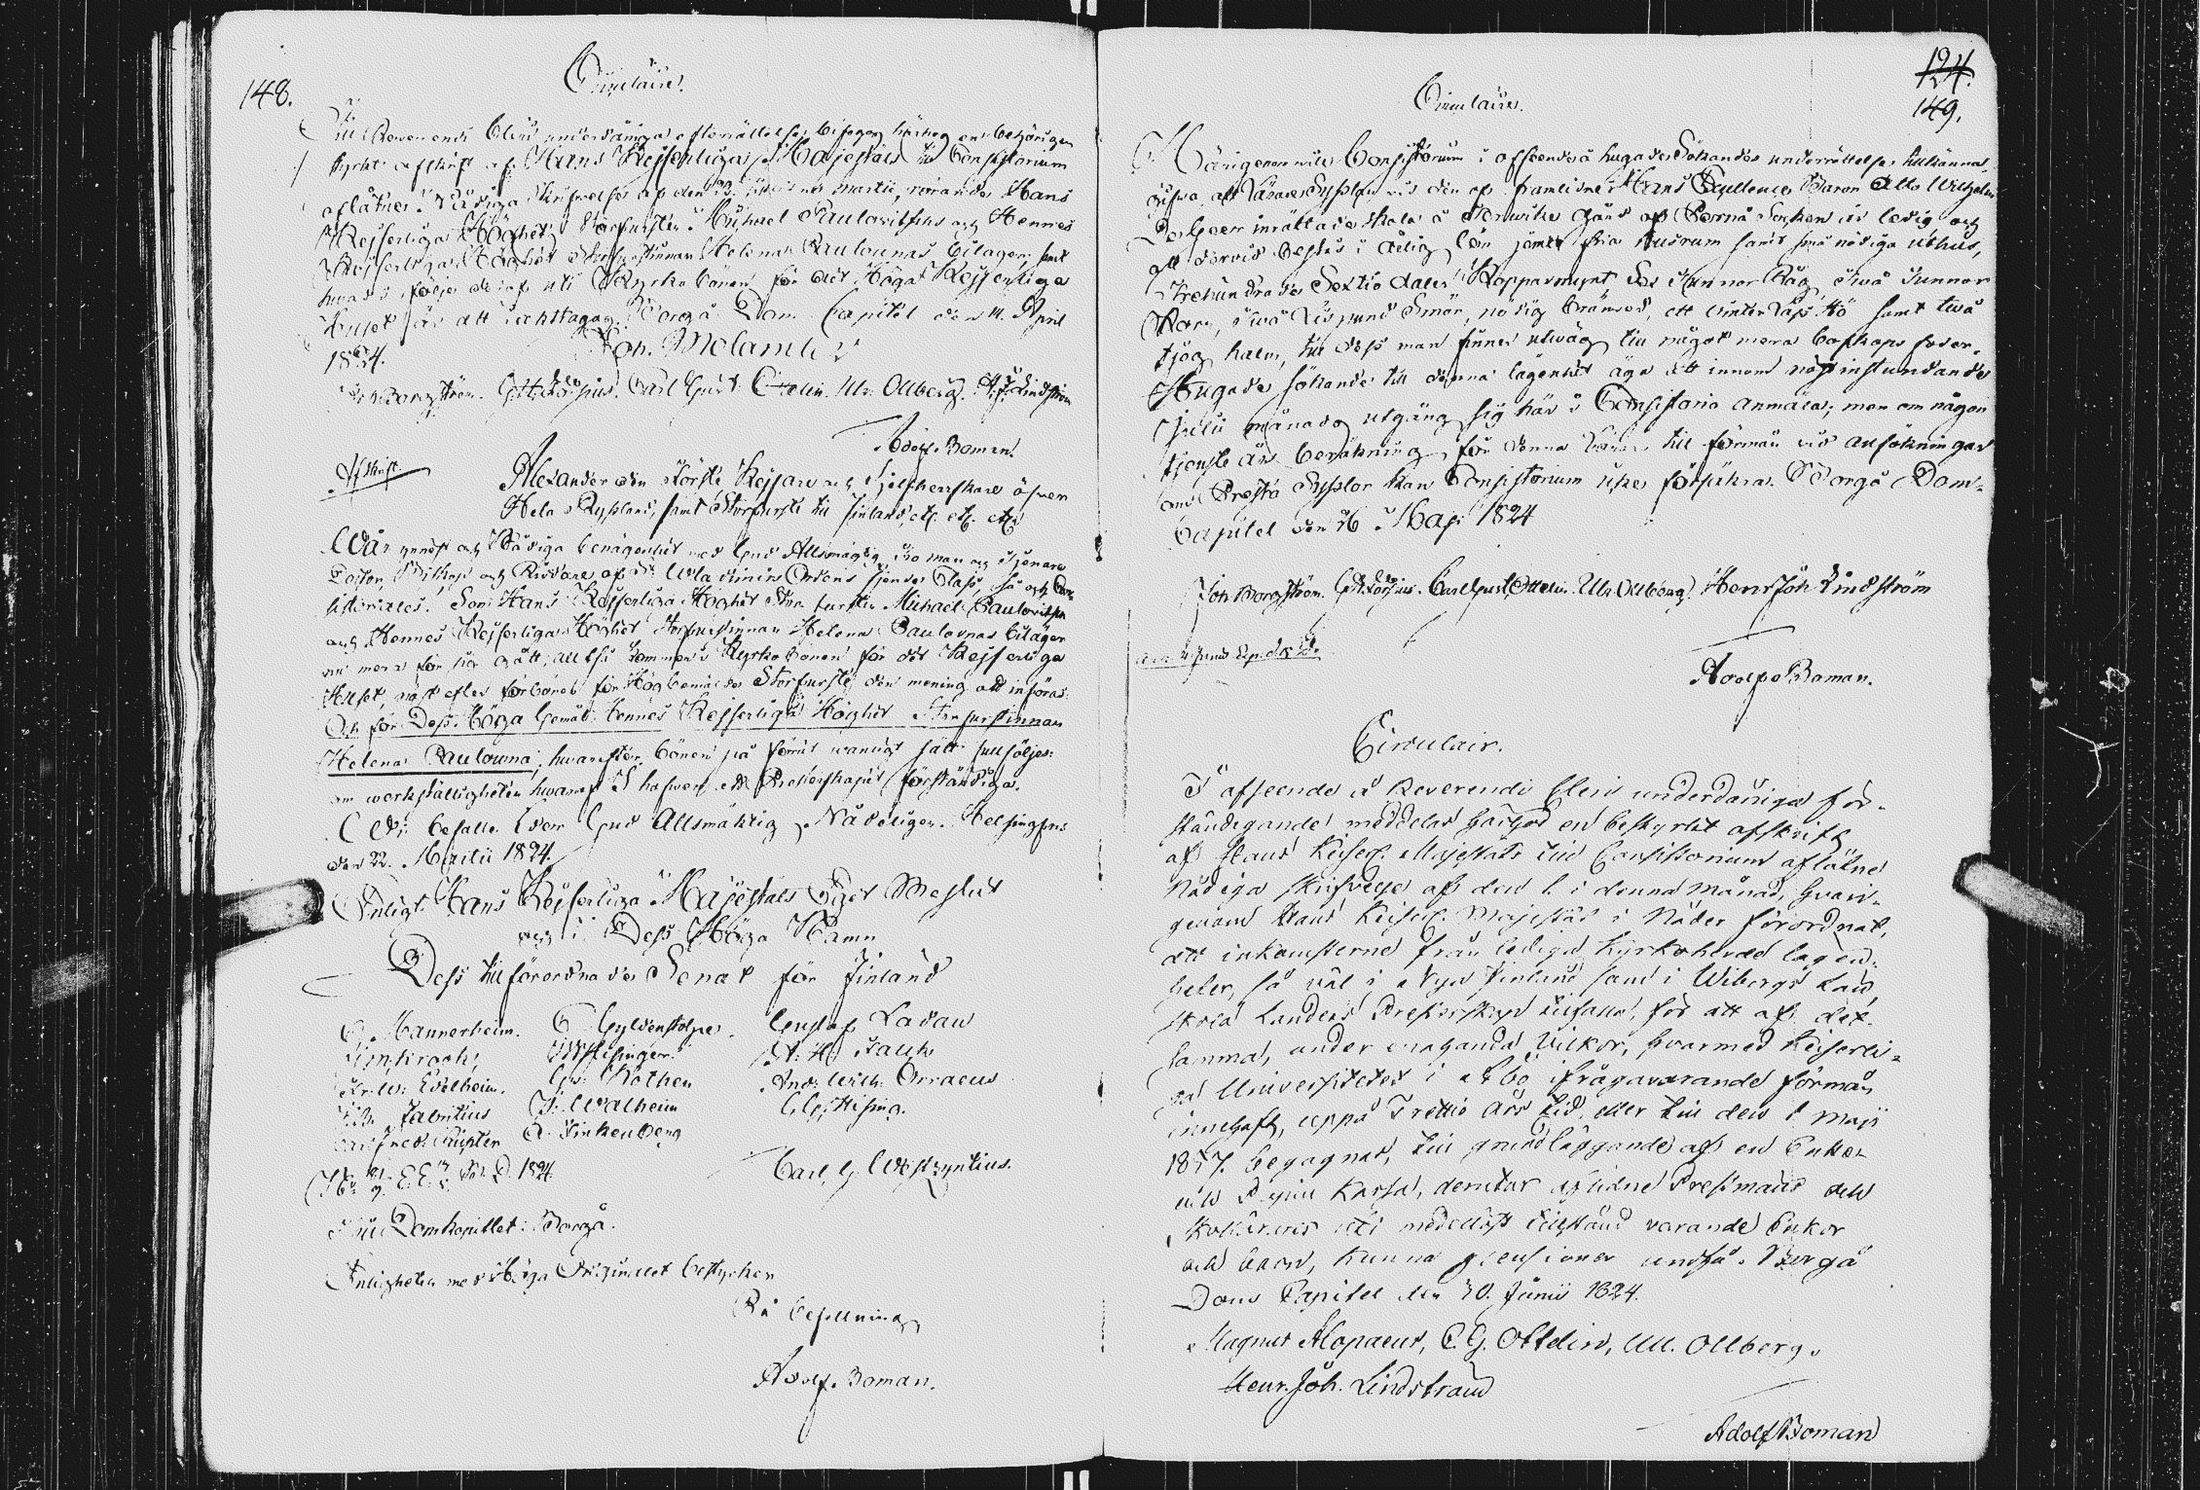 148.
Circulaire.
Till Reverendi Cleri underdåniga efterrättelse bifogas härhos en behörigen
styrkt afskrift af Hans Kejserliga Majestäts till Consistorium
aflåtne Nådiga Skrifwelse af den 22 Martii, rörande Hans
Kejserliga Höghet Storfursten Michael Paulovitschs och Hennes
Kejserliga Höghet Storfurstinnan Helenas Paulownas bilager, samt
hwad i följe deraf uti Kyrko bönen för det Höga Kejserliga
Huset är att iakttaga. Borgå Dom Capitel den 14 April
1824. Joh. Molander
Joh Borgström. Carl Gust. Ottelin. Ulr. Ollberg. H. J. Lindström
Adolf Boman.
Afskrift.
Alexander den Förste Kejsare och Sjelfherrskare öfver
Hela Ryssland, samt Storfurste till Finland, etc. etc. etc.
Wår ynnest och Nådiga benägenhet med Gud Allsmägtig, Tro man och Tjenare
Doctor, Biskop och Riddare af St Wladimirs Ordens Class, så och Con-
sistoriales. Som Hans Kejserliga Höghet Stor fursten Michael Paulovitsch
och Hennes Kejserliga Höghet Storfurstinnan Helena Paulovnas bilager
nu mera för sig gått; allt så kommer i Kyrko bönen för det Kejserliga
Huset, näst efter förbönen för Högbemälde Storfurste, den mening att införas:
Och för Dess Höga Gemål Hennes Kejserliga Höghet Storfurstinnan
Helena Paulowna; hwarefter bönen på förut wanligt sätt fullföljes:
om werkställigheten hwaraf I hafwen att Presterskapet förständiga.
Wi befalle Eder Gud Allsmäktig Nådeligen. Helsingfors
den 22. Martii 1824.
Enligt Hans Kejserliga Majestäts Eget Beslut
och i Dess Höga Namn
Dess tillförordnade Senat för Finland
C. Mannerheim. C Gyldenstolpe. Gustaf Ladau
Hisinger. A. H. Falck
Gu. Rothen And: Wilh: Orraeus
Fabritius J. Walheim Hising.
A. Finkenberg
Carl G Westzyntius.
Till Domkapitlet i Borgå.
Enligheten med höga Originallet bestyrker
På befallning
Adolf Boman.
124.
149.
Circulaire.
Härigenom wille Consistorium i afseende å hugade Sökandes underrättelse tillkänna-
gifwa, att Lärare Sysslan wid den af framlidne Hans Excellence Baron Otto Wilhelm
De Geer inrättade skola å Tervik Gård af Perno Socken är ledig och
att derwid bestås i årlig lön jämte fria husrum samt små nödiga uthus,
Trehundrade Sextio daler Kopparmynt, Sex Tunnor Råg, Twå Tunnor
Korn, Twå Lispund Smör, nödig bränwed, ett winterlass hö samt twå
tjog halm, till dess man finner utwäg till något mera boskaps foder.
Hugade sökande till denna lägenhet äga att innom nästinstundande
Julii månads utgång sig här i Consistorio anmäla; men om någon
tjenste års beräkning för denna Lärare till förmån wid ansökningar
om Presta Sysslor kan Consistorium icke försäkra. Borgå Dom-
Capitel den 26 Maji 1824
Joh Borgström. Carl Gust. Ottelin. Ulr Ollberg. Henr Joh Lindström
Adolf Boman.
Circulair.
I afseende å Reverendi Cleri underdåniga för-
ständigande meddelas härhos en bestyrkt afskrift
af Hans Kejserl. Majestäts till Consistorium aflåtne
Nådiga skrifvelse af den 1 i denna månad, hvari-
genom Hans Kejserl. Majestät i Nåder förordnat,
att inkomsterne från lediga Kyrkoherde lägen-
heter, så väl i Nya Finland som i Wiborgs Län
skola Landets Presterskap tillfalla, för att af det-
samma, under enahanda vilkor, hvarmed Kejserli-
ga Universitetet i Åbo ifrågavarande förmån
innehaft, uppå Trettio års tid, eller till den 1 Maji
1857. begagnas, till grundläggande af en Enke-
och Pupill Kassa, derutur aflidne Prestmäns och
Skolärares uti medellöst tillstånd varande Enkor
och barn, kunna pensioner undfå. Borgå
Dom Capitel den 30. Junii 1824.
Magnus Alopaeus, C. G. Ottelin, Ull. Ollberg.
Henr. Joh. Lindström
Adolf Boman